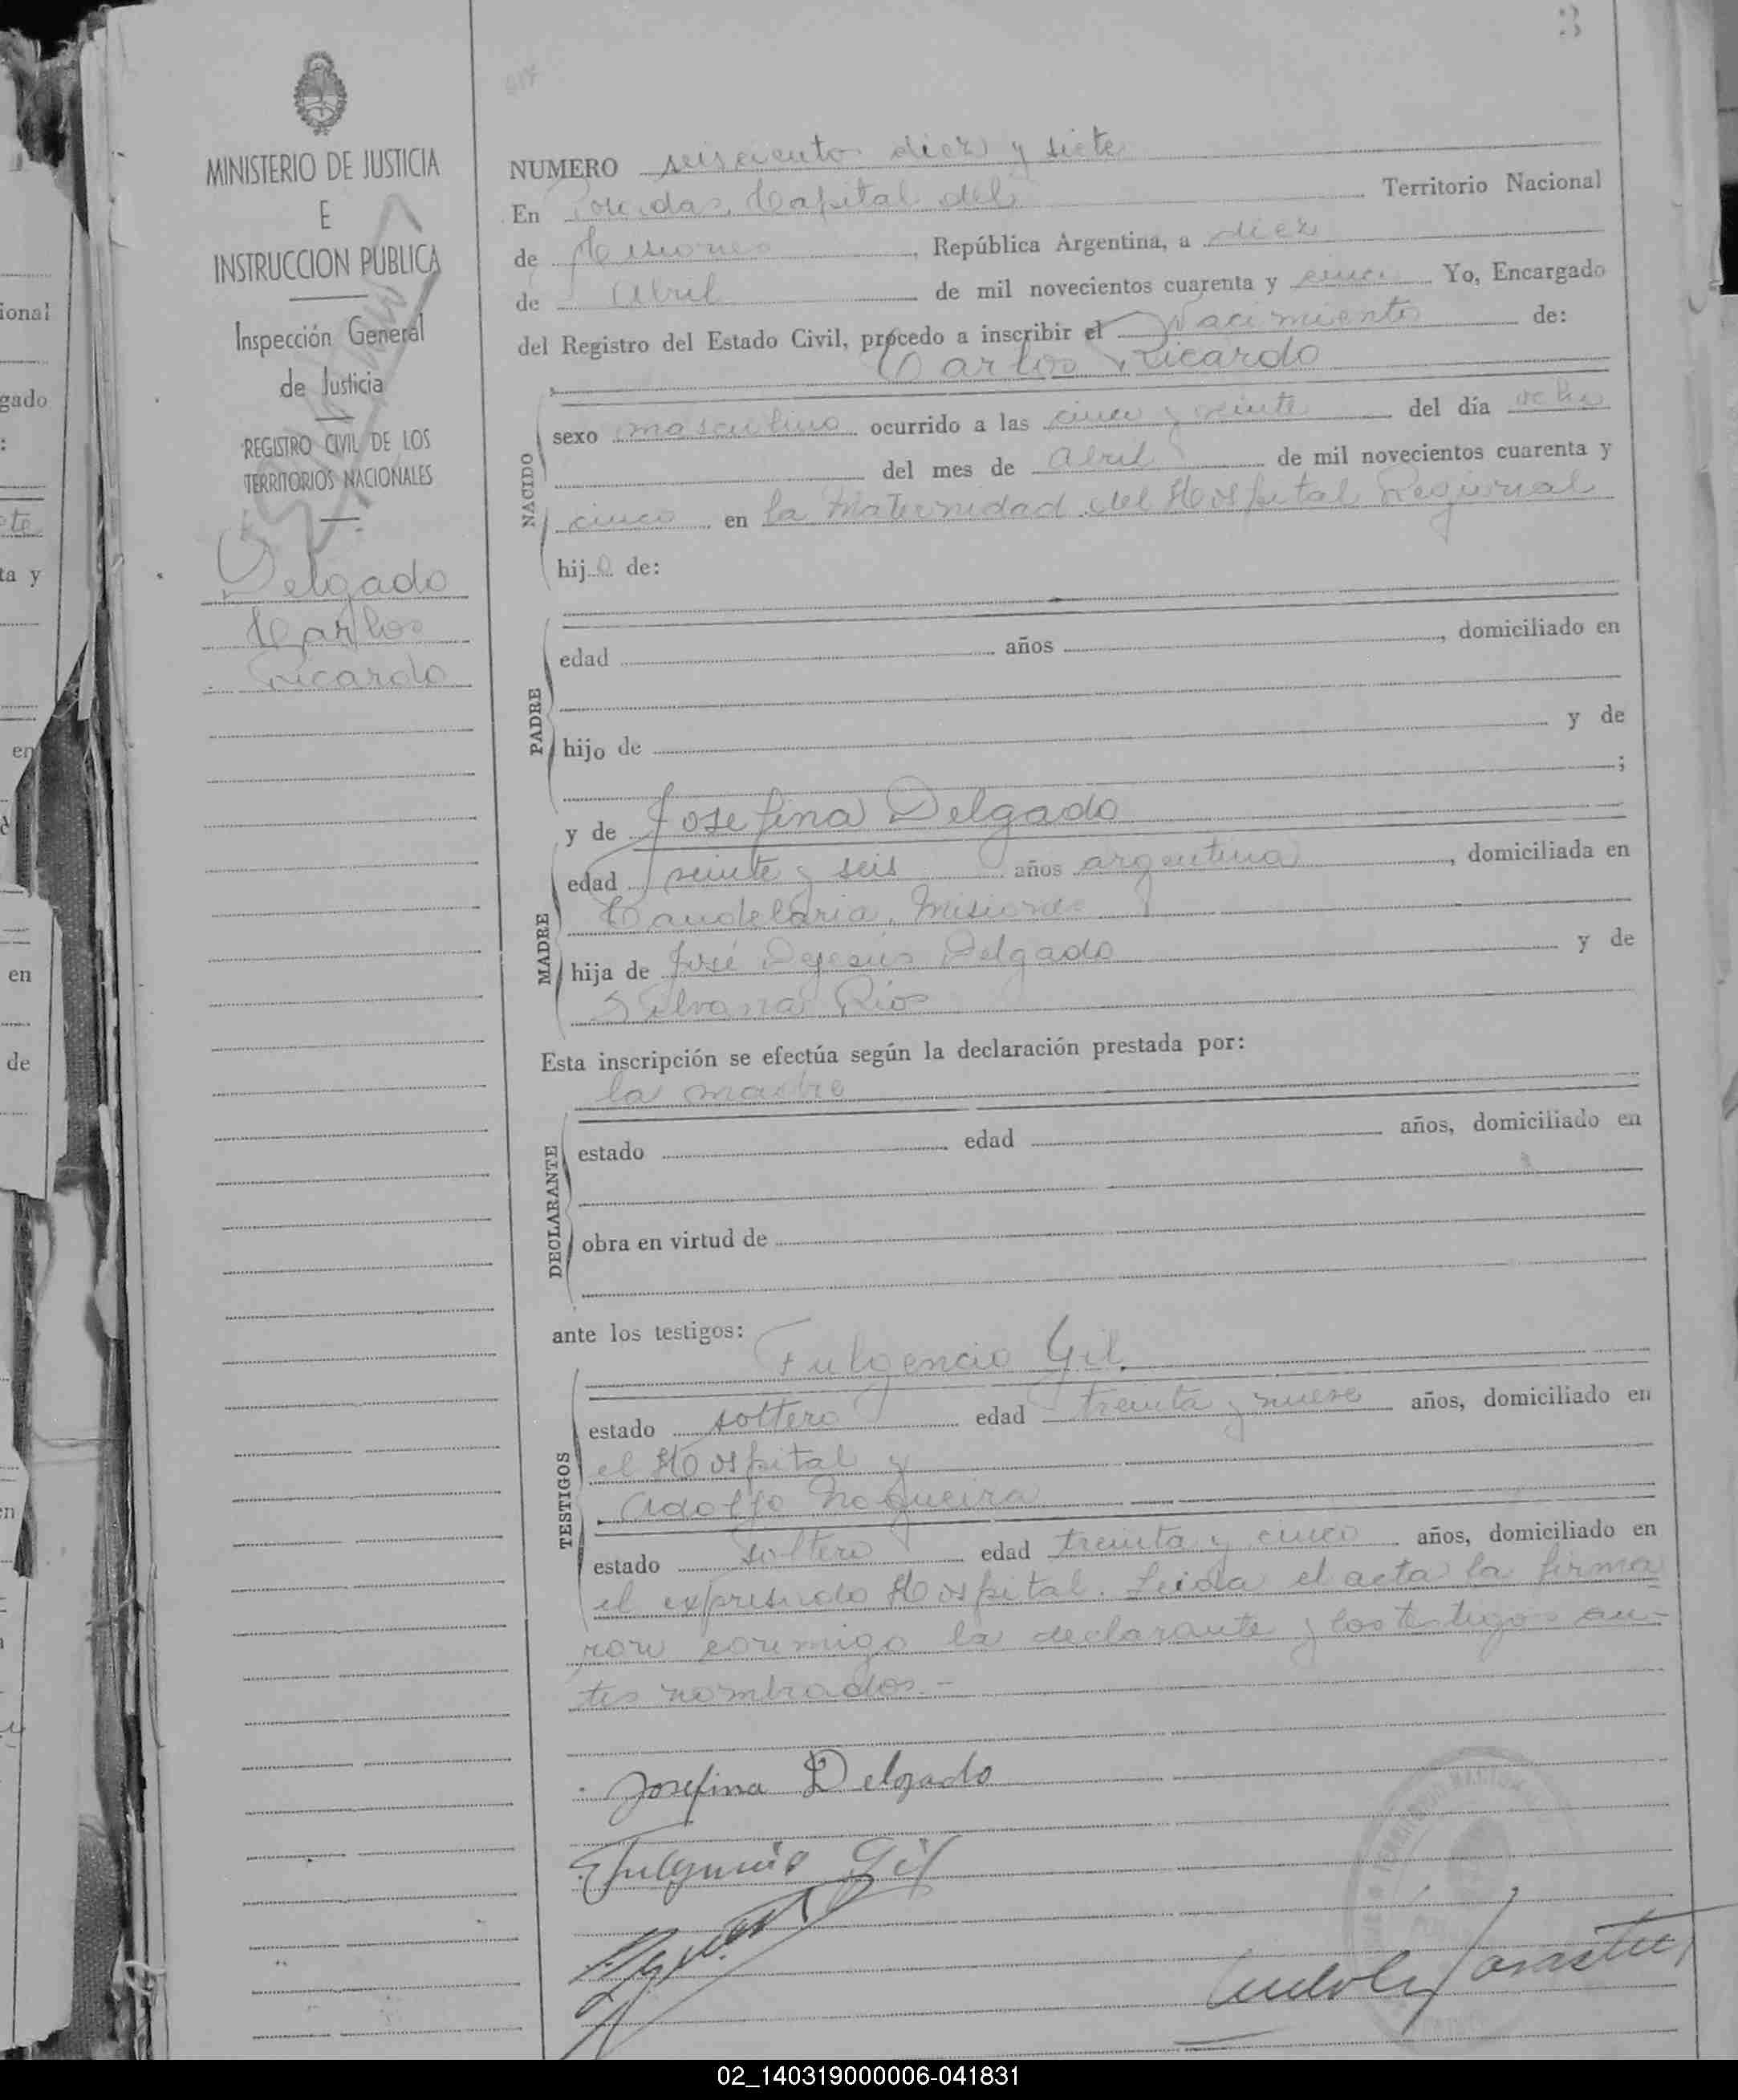 3
617
MINISTERIO DE JUSTICIA
E
INSTRUCCION PUBLICA
Inspección General
de Justicia
REGISTRO CIVIL DE LOS
TERRITORIOS NACIONALES
Delgado
Carlos
Ricardo
NUMERO seisciento diez y siete
En Posadas, Capital del Territorio Nacional
de Misiones, República Argentina, a diez
de Abril de mil novecientos cuarenta y cinco Yo, Encargado
del Registro del Estado Civil, procedo a inscribir el Nacimiento de:
Carlos Ricardo
NACIDO
sexo masculino ocurrido a las cinco y veinte del día ocho
del mes de Abril de mil novecientos cuarenta y
cinco en la Maternidad del Hospital Regional
hijo de:
PADRE
edad años , domiciliado en
hijo de y de
;
y de Josefina Delgado
MADRE
edad veinte y seis años argentina, domiciliada en
Candelaria, Misiones
hija de José Dejesús Delgado y de
Silvana Rios
Esta inscripción se efectúa según la declaración prestada por:
la madre
DECLARANTE
estado edad años, domiciliado en
obra en virtud de
ante los testigos:
Fulgencio Gil
TESTIGOS
estado soltero edad treinta y nueve años, domiciliado en
el Hospital y
Adolfo Nogueira
estado soltero edad treinta y cinco años, domiciliado en
el expresado Hospital. Leida el acta la firma
ron conmigo la declarante y los testigos an-
tes nombrados.-
Josefina Delgado
Fulgencio Gil
ional
gado
:
ete
ta y
en
en
de
en
02_140319000006-041831